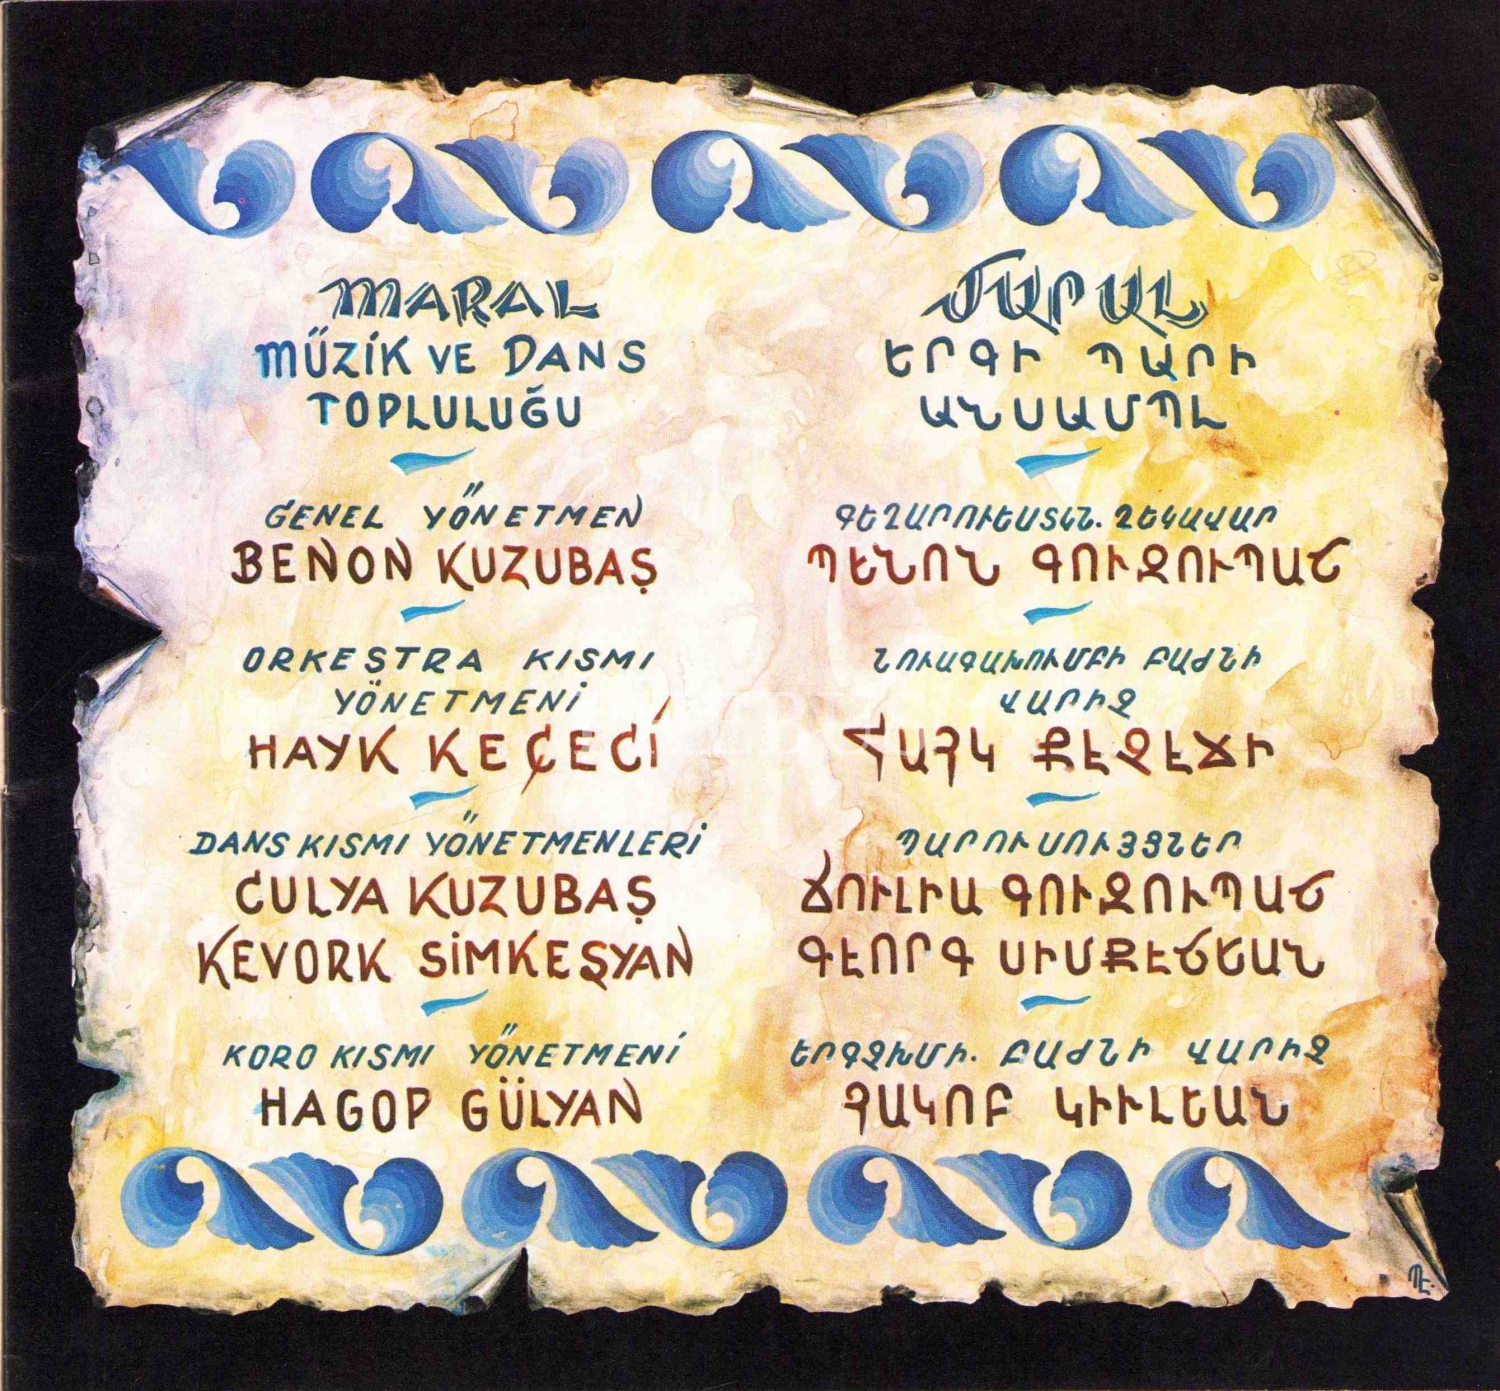 MARAL
MÜZİK VE DANS
TOPLULUĞU
GENEL YÖNETMEN
BENON KUZUBAŞ
ORKESTRA KISMI
YÖNETMENİ
HAYK KEÇECİ
DANS KISMI YÖNETMENLERİ
CULYA KUZUBAŞ
KEVORK SİMKEŞYAN
KORO KISMI YÖNETMENİ
HAGOP GÜLYAN
ՄԱՐԱԼ
ԵՐԳԻ ՊԱՐԻ
ԱՆՍԱՄՊԼ
ԳԵՂԱՐՈՒԵՍՏԿՆ. ՂԵԿԱՎԱՐ
ՊԵՆՈՆ ԳՈՒԶՈՒՊԱՇ
ՆՈՒԱԳԱԽՈՒՄԲԻ ԲԱԺՆԻ
ՎԱՐԻՉ
ՀԱՅԿ ՔԷՉԷՃԻ
ՊԱՐՈՒՍՈՒՅՑՆԵՐ
ՃՈՒԼԻԱ ԳՈՒԶՈՒՊԱՇ
ԳԷՈՐԳ ՍԻՄՔԷՇԵԱՆ
ԵՐԳՉԽՄԲ. ԲԱԺՆԻ ՎԱՐԻՉ
ՅԱԿՈԲ ԿԻՒԼԵԱՆ
ՊԷ.